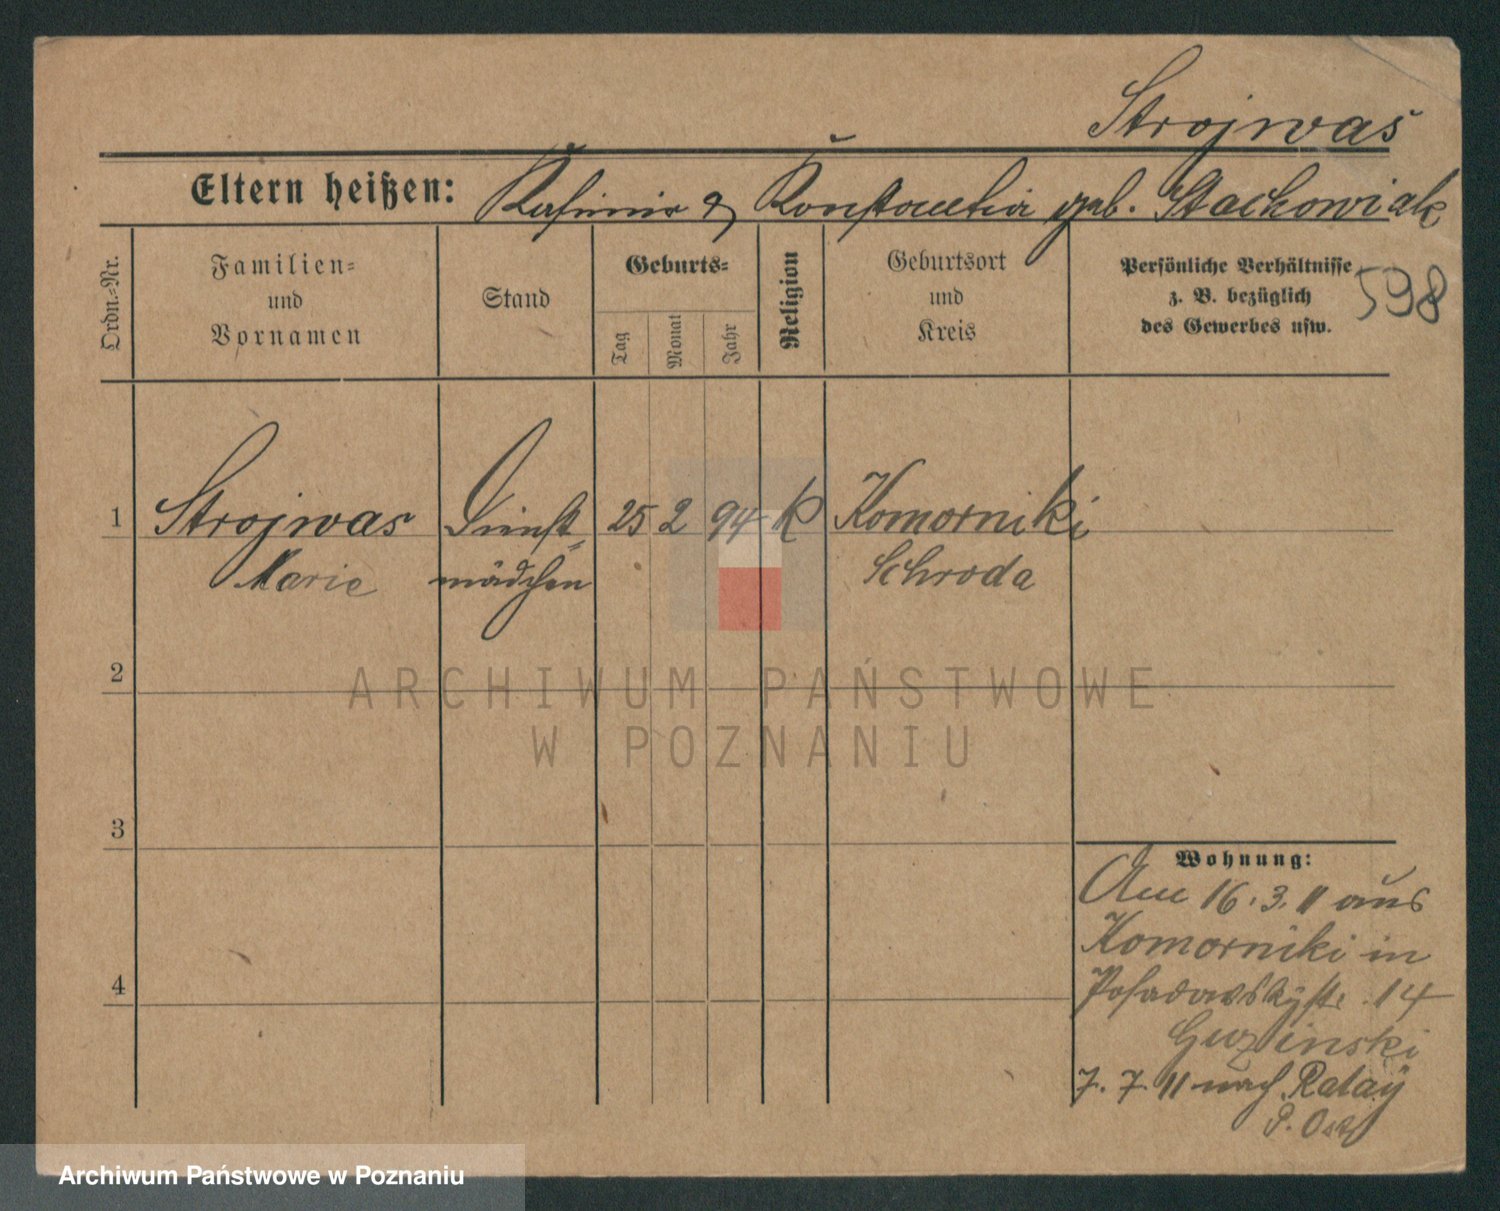 Strojwas
Eltern heißen: Kasimir & Konstantia geb. Stachowiak
Ordn.-Nr.
Familien-
und
Vornamen
Stand
Geburts-
Tag
Monat
Jahr
Religion
Geburtsort
und
Kreis
Persönliche Verhältnisse
z. B. bezüglich
des Gewerbes usw.
598
1 Strojwas Dienst- 25 2 94 K Komorniki
Marie mädchen Schroda
2
ARCHIWUM PAŃSTWOWE
W POZNANIU
3
Wohnung:
Am 16.3.11 aus
Komorniki in
Posadowskystr. 14
Guzinski
4
7.7.11 nach Rataÿ
P. Ost
Archiwum Państwowe w Poznaniu